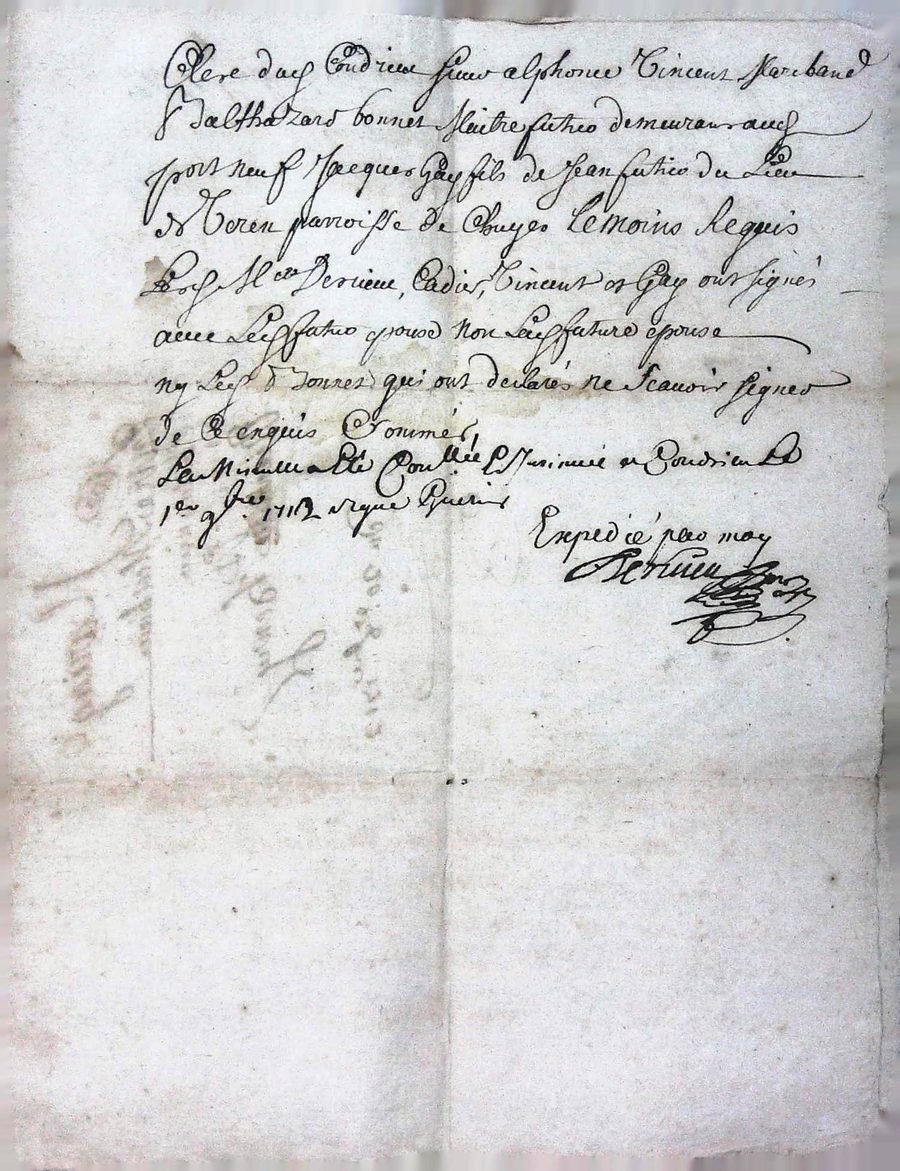 Clerc dud Condrieu sieur alphonce Vincent Marchand
& Balthazard bonnet Maitre futier demeurans aud
port neuf Jacques Gay fils de Jean futier du Lieu
de Veren parroisse de Chuyes temoins Requis
Lesd Derieu, Cadier, Vincent et Gay ont signés
avec Led futur epoux non Lad future epouse
ny Led Sr Bonnet qui ont declarés ne Scavoir signer
de Ce enquis & sommés
La Minutte a Eté Con.llée & Insinuée a Condrieu Le
1er 9bre 1712 signé Guerin
Expedié par moy
Derieu